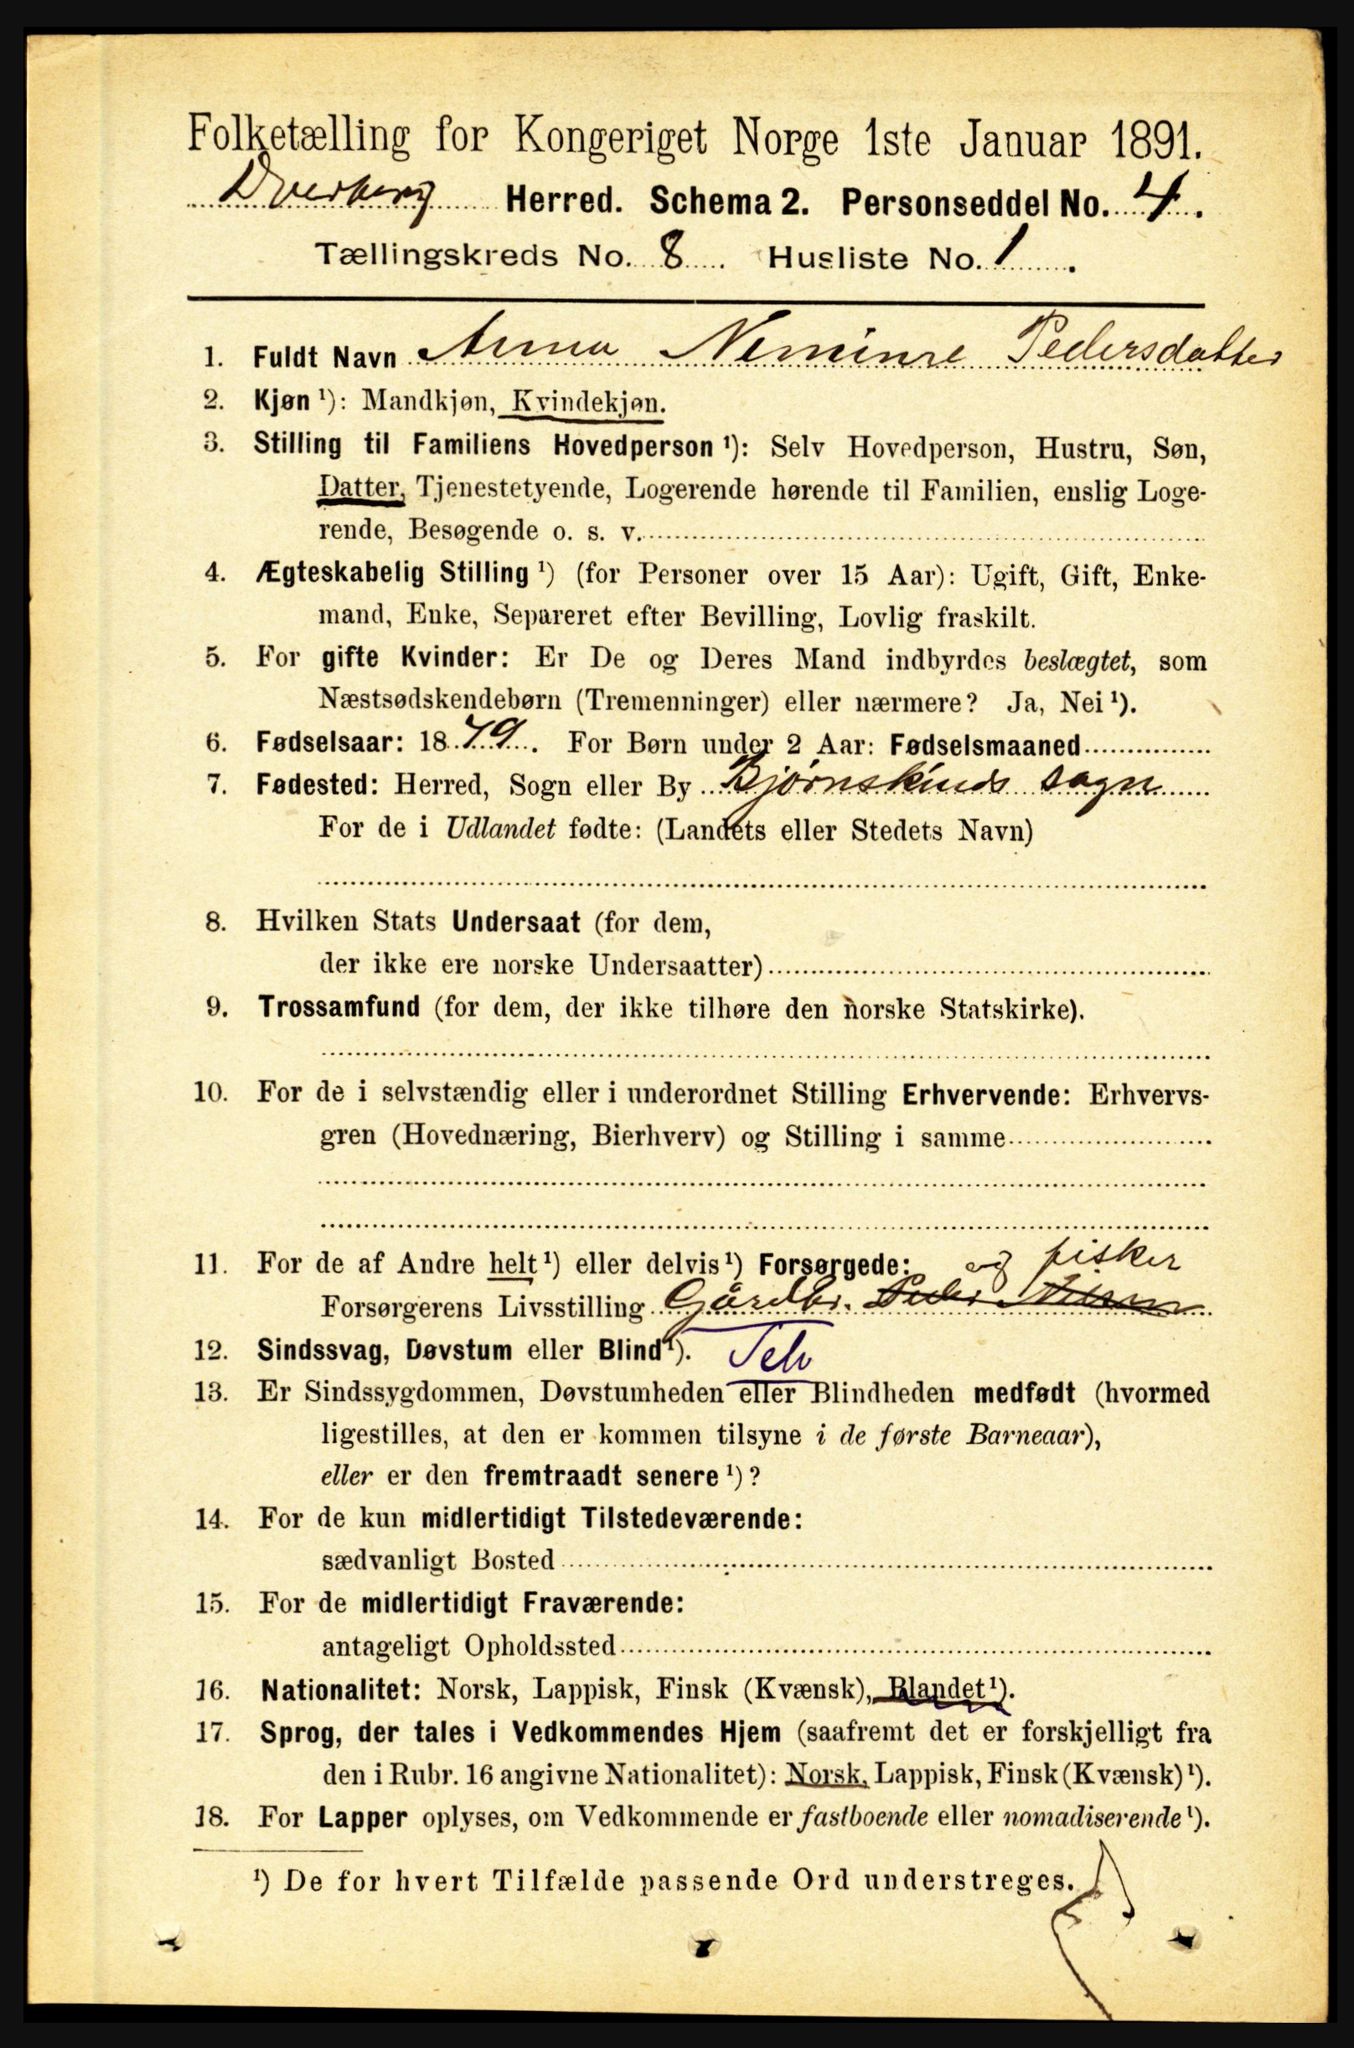 Folketælling for Kongeriget Norge 1ste Januar 1891.
Dverberg Herred. Schema 2. Personseddel No. 4.
Tællingskreds No. 8. Husliste No. 1.
1. Fuldt Navn Anna Neminse Pedersdatter
2. Kjøn ¹): Mandkjøn, Kvindekjøn.
3. Stilling til Familiens Hovedperson ¹): Selv Hovedperson, Hustru, Søn,
Datter, Tjenestetyende, Logerende hørende til Familien, enslig Loge-
rende, Besøgende o. s. v.
4. Ægteskabelig Stilling ¹) (for Personer over 15 Aar): Ugift, Gift, Enke-
mand, Enke, Separeret efter Bevilling, Lovlig fraskilt.
5. For gifte Kvinder: Er De og Deres Mand indbyrdes beslægtet, som
Næstsødskendebørn (Tremenninger) eller nærmere? Ja, Nei ¹).
6. Fødselsaar: 1879. For Børn under 2 Aar: Fødselsmaaned
7. Fødested: Herred, Sogn eller By Bjørnskinds sogn
For de i Udlandet fødte: (Landets eller Stedets Navn)
8. Hvilken Stats Undersaat (for dem,
der ikke ere norske Undersaatter)
9. Trossamfund (for dem, der ikke tilhøre den norske Statskirke).
10. For de i selvstændig eller i underordnet Stilling Erhvervende: Erhvervs-
gren (Hovednæring, Bierhverv) og Stilling i samme
11. For de af Andre helt ¹) eller delvis ¹) Forsørgede: og fisker
Forsørgerens Livsstilling Gårdbr. Peder
12. Sindssvag, Døvstum eller Blind ¹).
13. Er Sindssygdommen, Døvstumheden eller Blindheden medfødt (hvormed
ligestilles, at den er kommen tilsyne i de første Barneaar),
eller er den fremtraadt senere ¹)?
14. For de kun midlertidigt Tilstedeværende:
sædvanligt Bosted
15. For de midlertidigt Fraværende:
antageligt Opholdssted
16. Nationalitet: Norsk, Lappisk, Finsk (Kvænsk), Blandet ¹).
17. Sprog, der tales i Vedkommendes Hjem (saafremt det er forskjelligt fra
den i Rubr. 16 angivne Nationalitet): Norsk, Lappisk, Finsk (Kvænsk) ¹).
18. For Lapper oplyses, om Vedkommende er fastboende eller nomadiserende ¹).
¹) De for hvert Tilfælde passende Ord understreges.